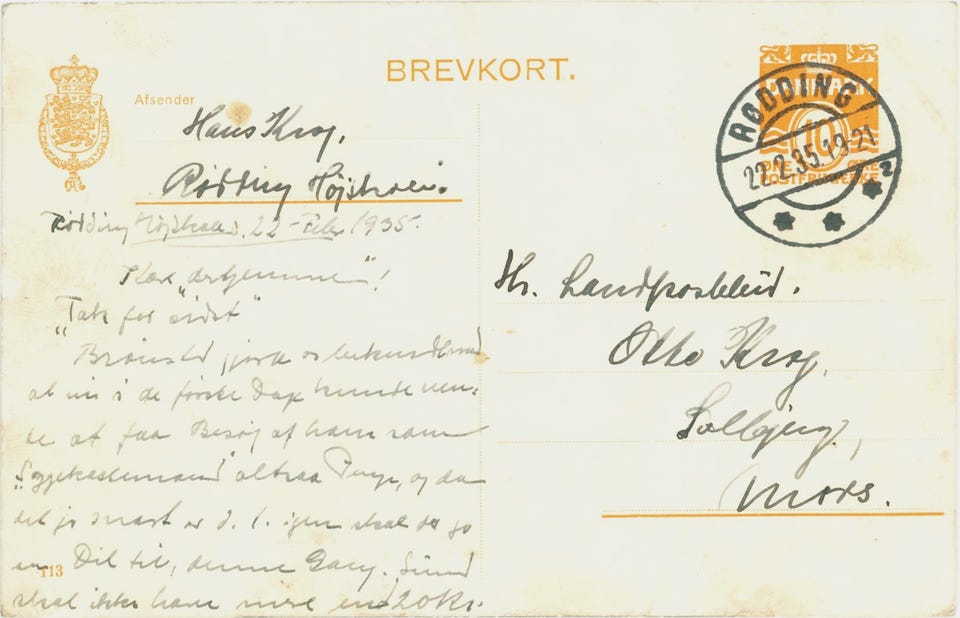 BREVKORT.
Afsender
Hans Krog,
Rødding Højskole.
DANMARK
10
ØRE ØRE
POSTFRIMÆRKE
RØDDING
22.2.35.19-21
2
Rødding Højskole d. 22 - Febr 1935.
Kære "derhjemme"!
"Tak for sidst"
Brønsted gjorde os bekendt med
at vi i de første Dage kunde ven-
te at faa Besøg af ham som
altsaa Penge, og da
det jo snart er d. 1. igen skal der jo
en Del til, denne Gang.
skal ikke have mere end 20 Kr.
113
Hr. Landpostbud.
Otto Krog,
Solbjerg,
Mors.